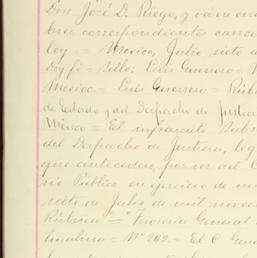 Don José D. Riego, y vá en cua
bres correspondientes cance
ley = México, Julio siete d
Doy fé = Sello: Luis Guerrero = N
México = Luis Guerrero = Rúb
de Estado y del Despacho de Justic
México = El infrascrito Subs
del Despacho de Justicia, leg
que anteceden, por ser del C
rio Público en ejercicio de
siete de Julio de mil novec
Rúbrica = General
= Nº 242 = El C